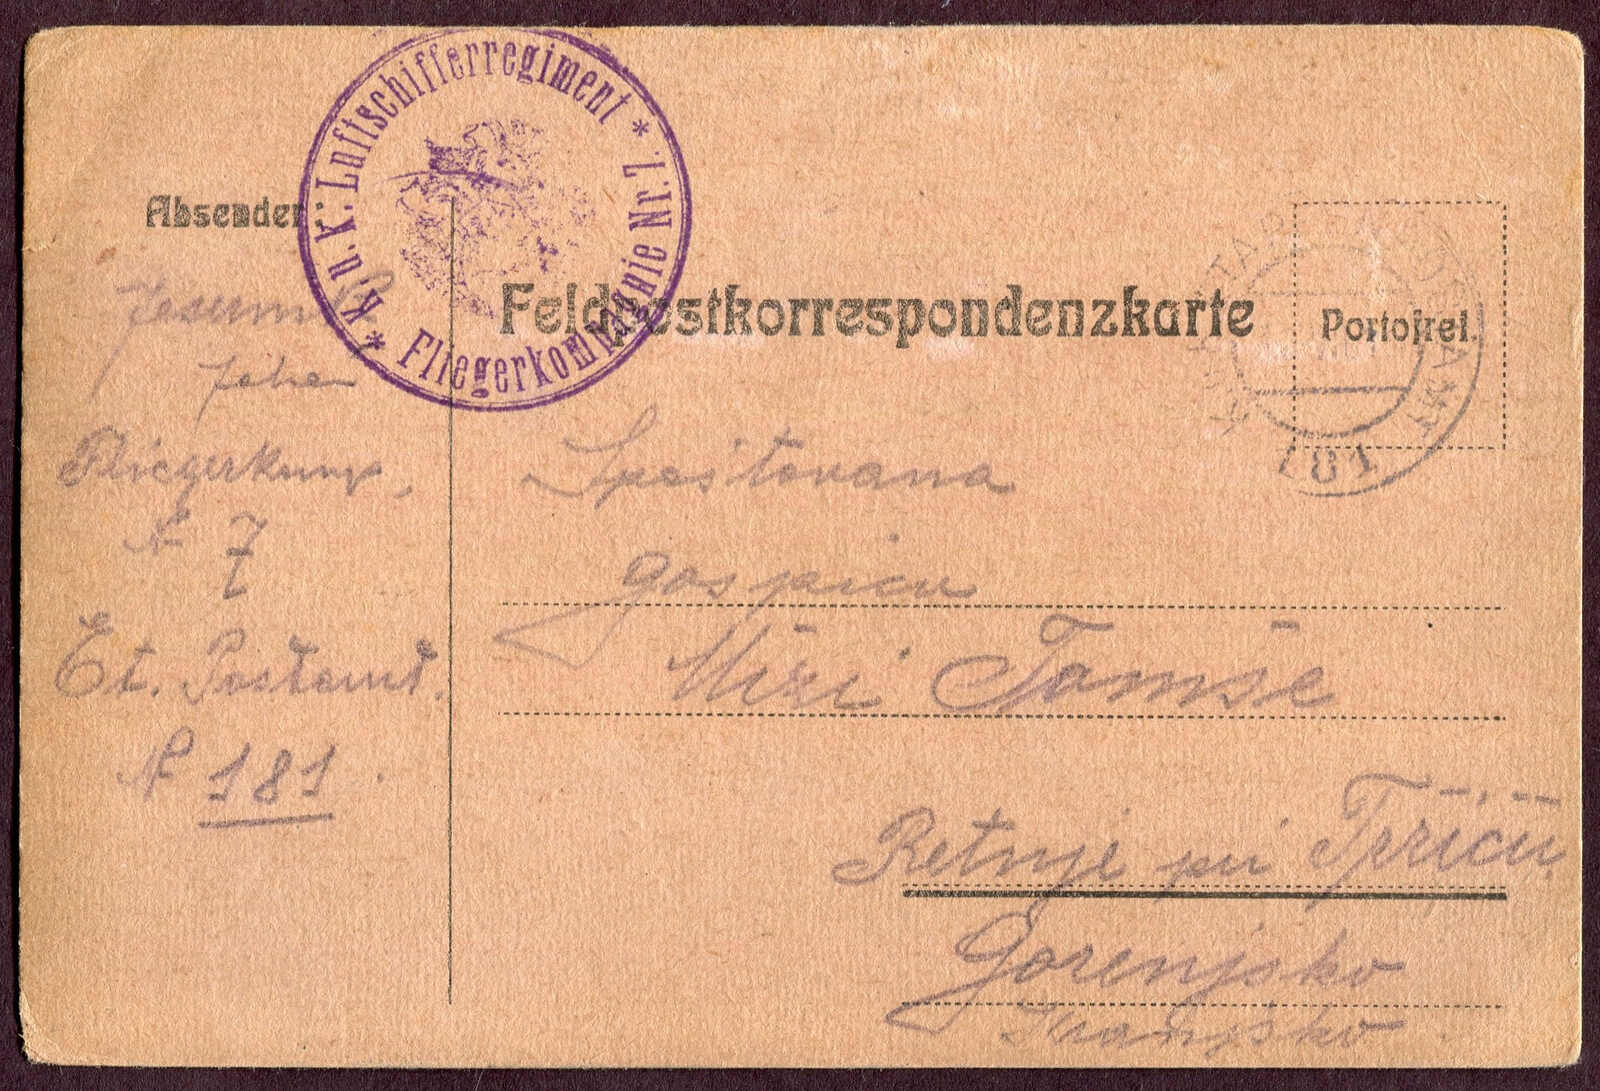 K. u. K. Luftschifferregiment * Fliegerkompagnie Nr. 7. *
Absender
Feldpostkorrespondenzkarte
Portofrei.
181
Fliegerkomp,
N 7
Et. Postamt.
N 181.
Spoštovana
gospica
Mizi Tomše
Retnje pri Tržiču
Gorenjsko
Kranjsko.